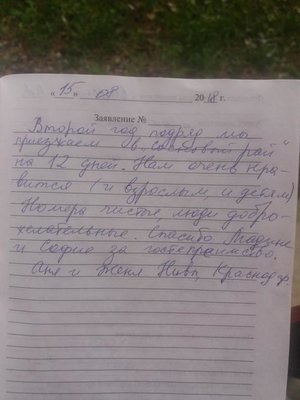 « 15 » 08 2018 г.
Заявление №
Второй год подряд мы
приезжаем в „Сосновый рай"
на 12 дней. Нам очень нра-
вится (и взрослым и детям)
Номера чистые, люди добро-
желательные. Спасибо Мадине
и Софие за гостеприимство.
Аня и Женя